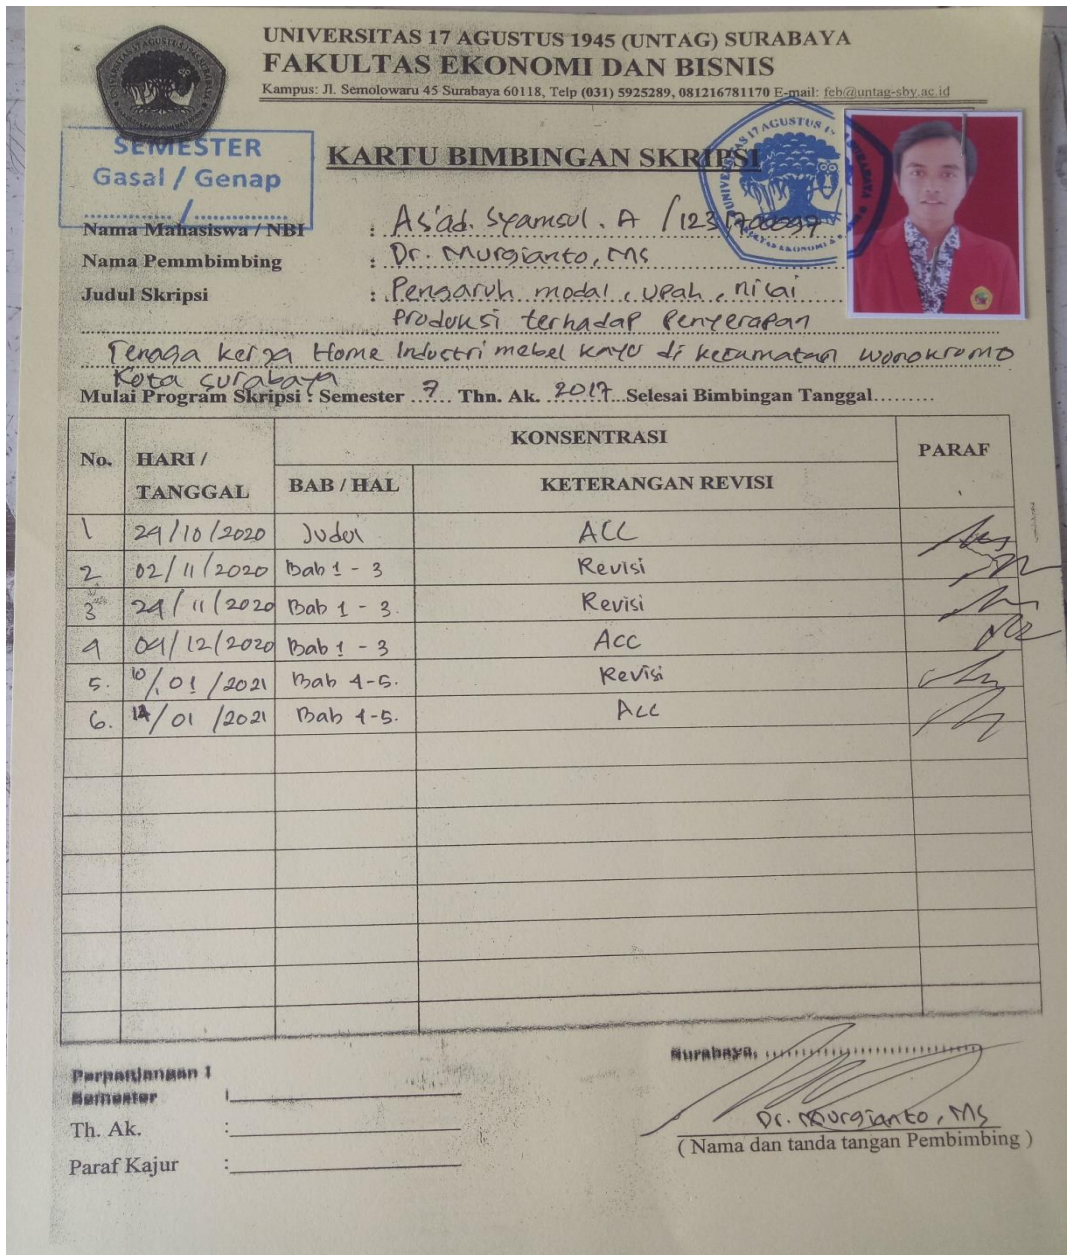 UNIVERSITAS 17 AGUSTUS 1945 (UNTAG) SURABAYA
FAKULTAS EKONOMI DAN BISNIS
Kampus: Jl. Semolowaru 45 Surabaya 60118, Telp (031) 5925289, 081216781170 E-mail: feb@untag-sby.ac.id
SEMESTER
Gasal / Genap
............/............
KARTU BIMBINGAN SKRIPSI
Nama Mahasiswa / NBI : As'ad. Syamsul. A /
Nama Pemmbimbing : Dr. Murgianto, Ms
Judul Skripsi : Pengaruh modal, upah, nilai
Produksi terhadap Penyerapan
Tenaga kerja Home Industri mebel kayu di kecamatan wonokromo
Kota Surabaya
Mulai Program Skripsi : Semester 7 Thn. Ak. 2017 Selesai Bimbingan Tanggal.........
No. HARI / TANGGAL KONSENTRASI PARAF
BAB / HAL KETERANGAN REVISI
1 29/10/2020 Judul ACC
2 02/11/2020 Bab 1 - 3 Revisi
3 24/11/2020 Bab 1 - 3. Revisi
4 04/12/2020 Bab 1 - 3 Acc
5. 10/01/2021 Bab 4-5. Revisi
6. /01/2021 Bab 4-5. Acc
Surabaya, ..............................
Perpanjangan 1
Semester :
Th. Ak. :
Paraf Kajur :
Dr. Murgianto, Ms
( Nama dan tanda tangan Pembimbing )